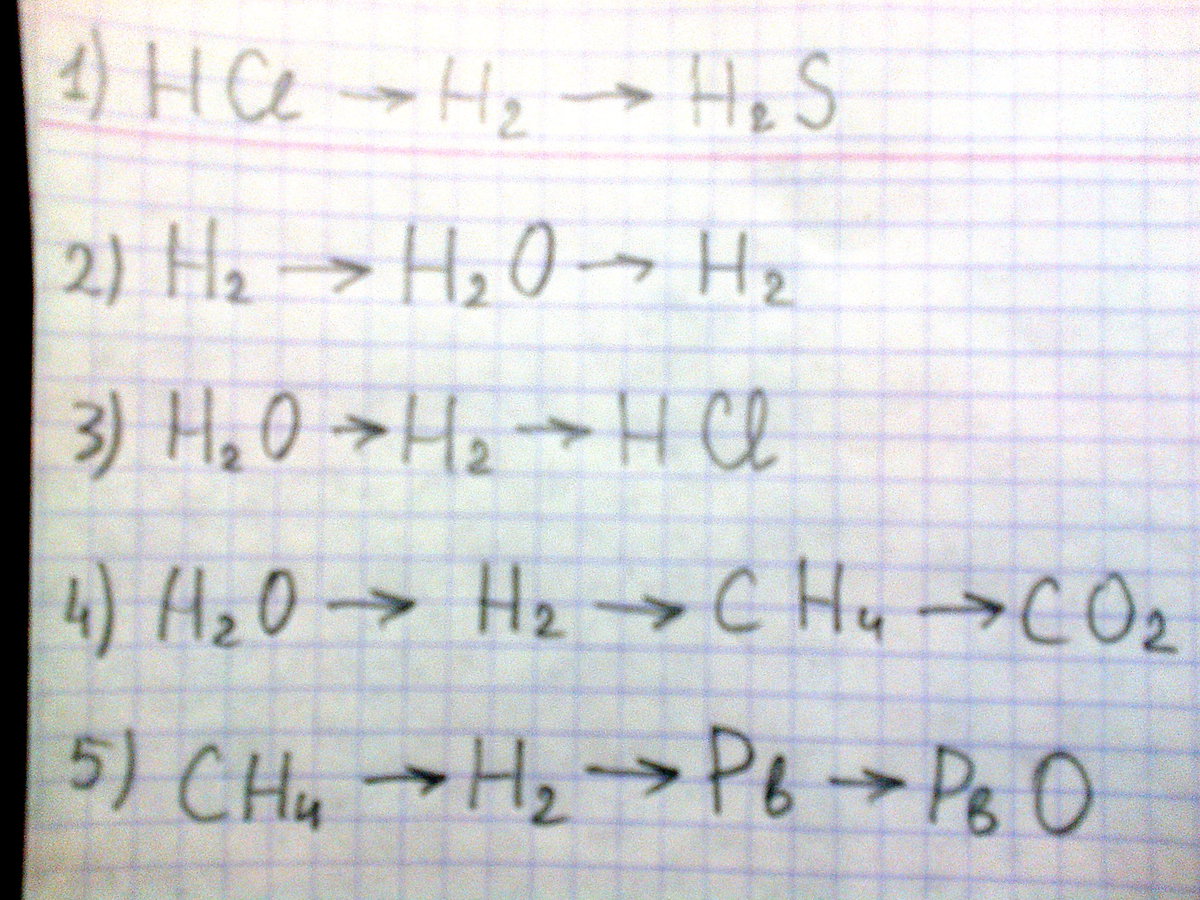 1) HCl → H₂ → H₂S
2) H₂ → H₂O → H₂
3) H₂O → H₂ → HCl
4) H₂O → H₂ → CH₄ → CO₂
5) CH₄ → H₂ → Pb → PbO